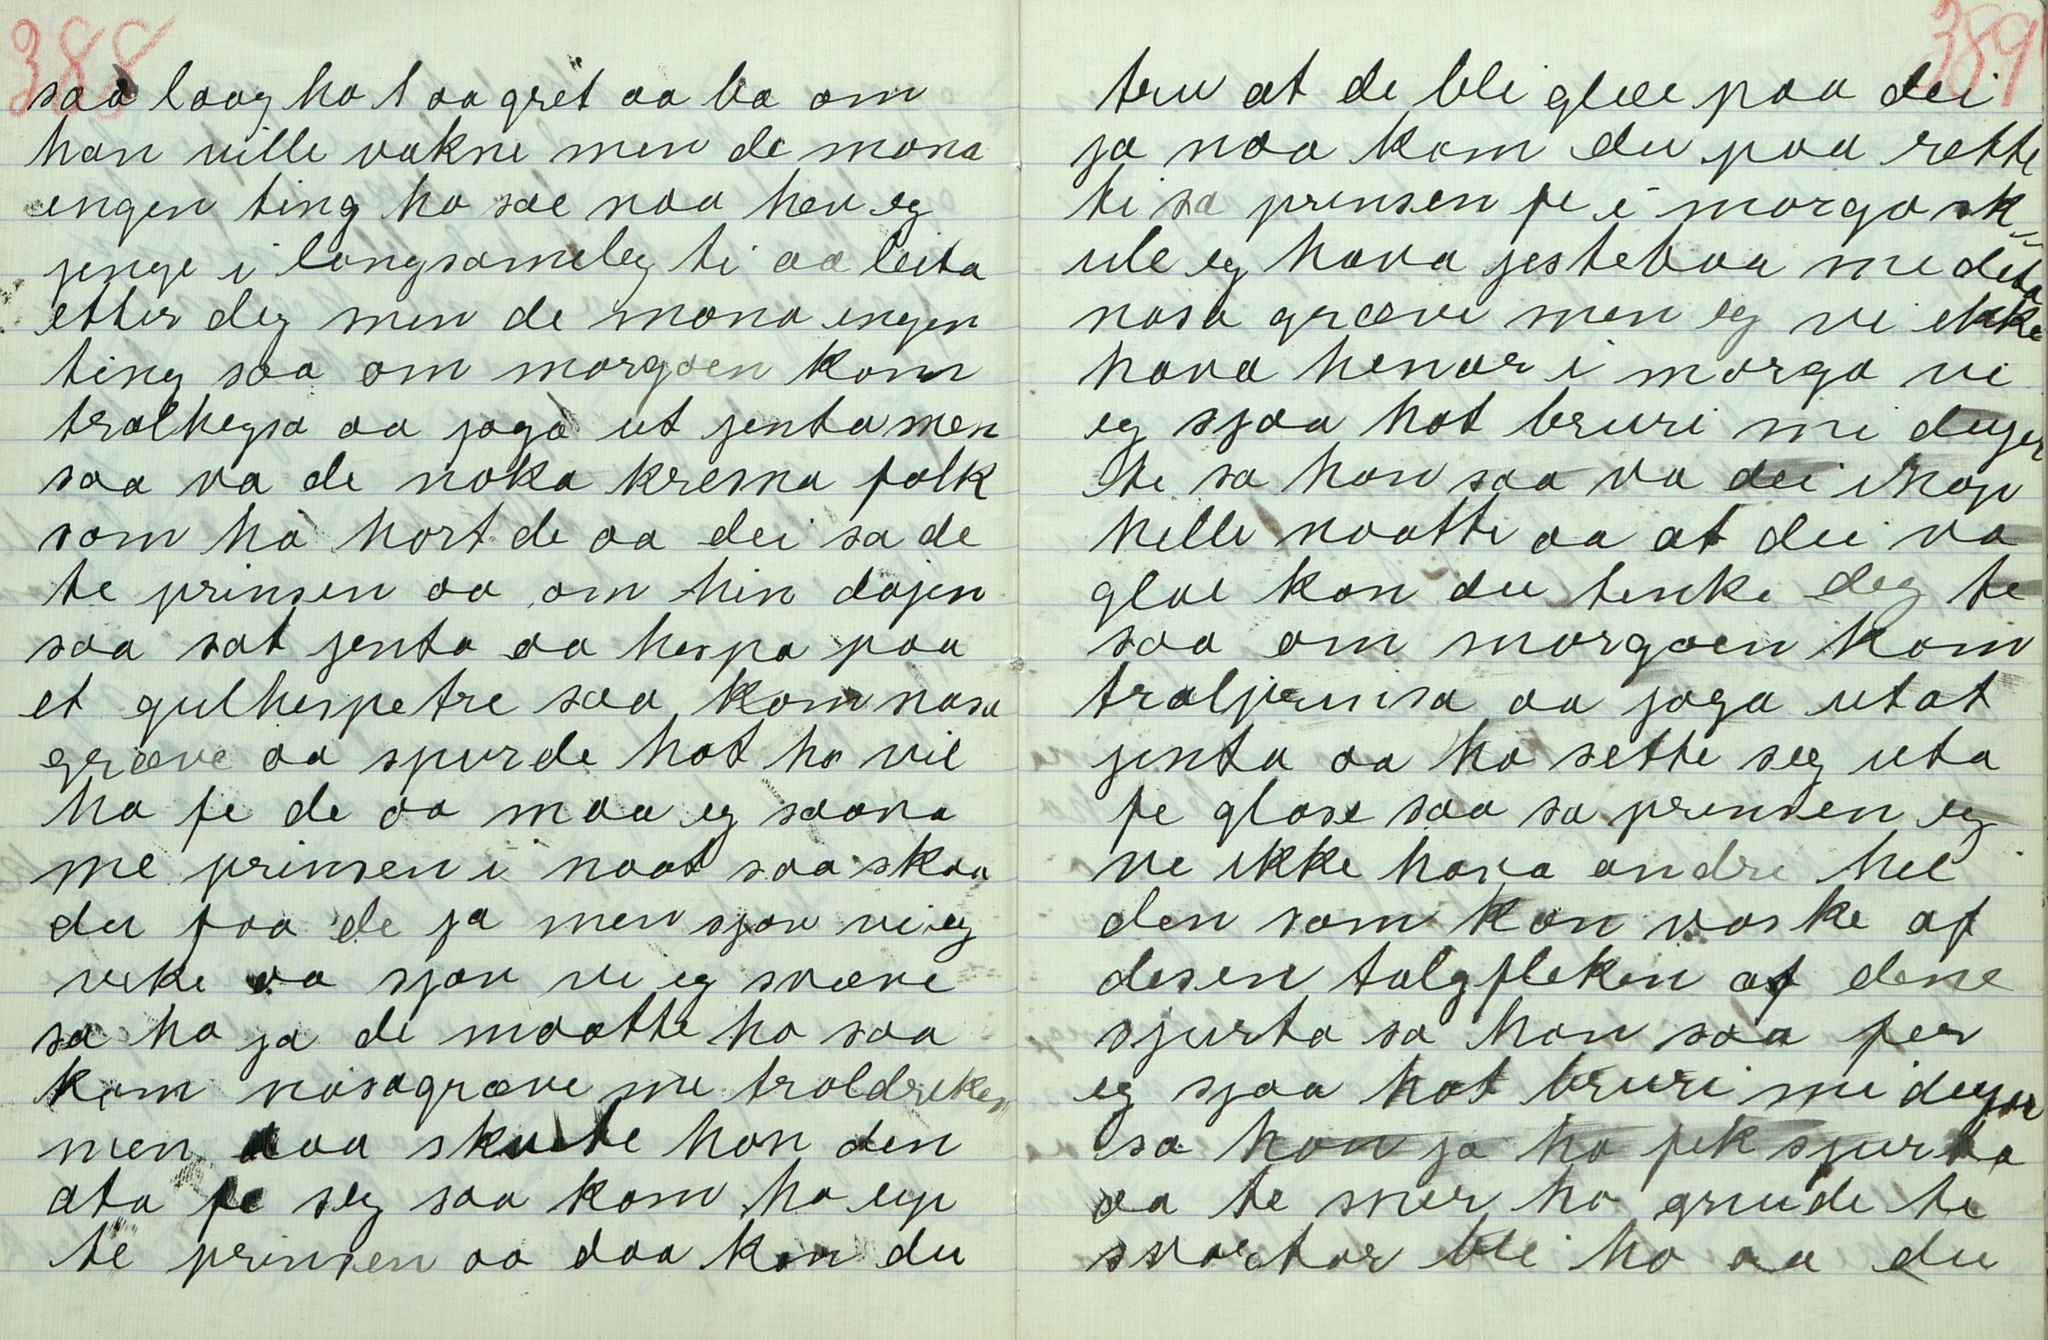 388
saa laag ho l aa gret aa ba om
han ville vakne men de mona
engen ting ho sae naa hev eg
jenge i langsameleg ti aa leita
etter deg men de mona engen
ting saa om morgaen kom
tralhegsa aa jaga ut jenta men
saa va de noka kresna falk
som ha hort de aa dei sa de
te prinsen aa om hin dajen
saa sat jenta aa hespa paa
et gulhespetre saa kom nasa
græve aa spurde hat ho vil
ha fe de aa maa eg saava
me prinsen i naat saa skaa
du faa de ja men sjav vi eg
veke aa sjav ve eg svæve
sa ho ja de maatte ho saa
kom nasagræve me traldreken
men daa skutte han den
ata fe seg saa kom ho up
te prinsen aa daa kan du
389
tru at de blei glae paa dei
ja naa kom du paa rette
ti sa prinsen fe i morga sk"
ule eg hava jestebaa me deta
nasa græve men eg vi ekke
hava henar i morga vi
eg sjaa hat bruri mi duger
te sa han saa va dei ihop
helle naatte aa at dei va
glae kan du tenke deg te
saa om morgaen kom
tralprinsa aa jaga utat
jenta aa ho sette seg uta
fe glase saa sa prinsen eg
ve ikke hava andre hel
den som kan vaske af
desen talgfleken af dene
sjurta sa han saa fer
eg sjaa hat bruri mi duger
sa han ja ho fek sjurta
aa te mer ho gnude te
svartar blei ho aa du